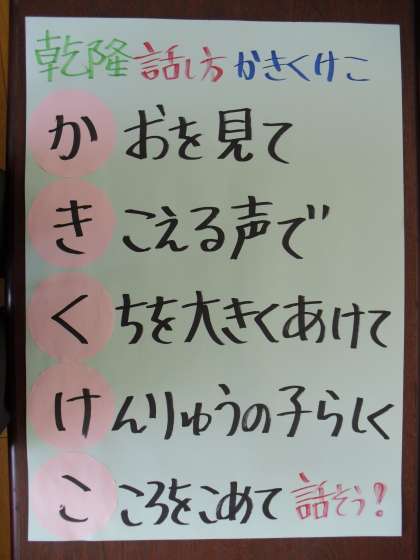 乾隆 話し方 かきくけこ
かおを見て
きこえる声で
くちを大きくあけて
けんりゅうの子らしく
こころをこめて 話そう!